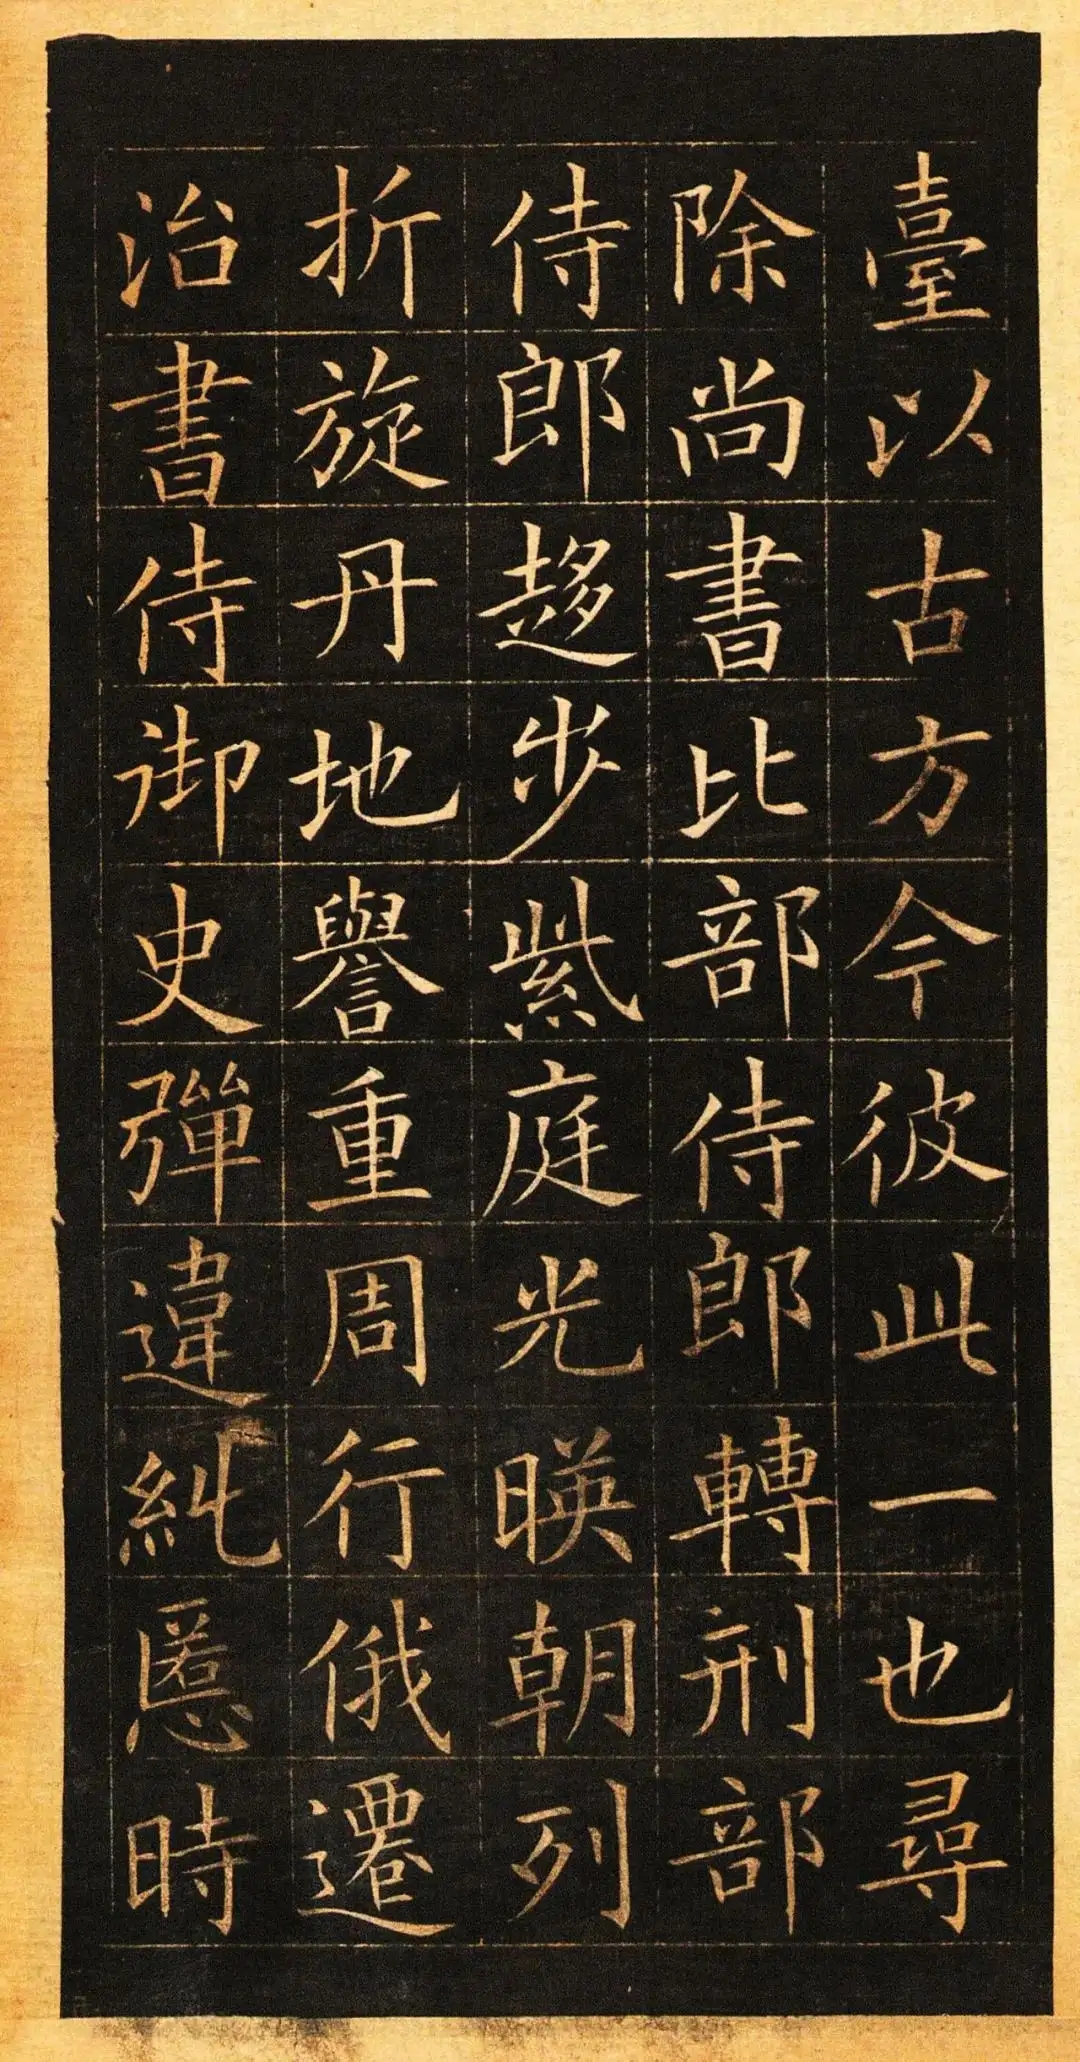 臺以古方今彼此一也尋
除尚書比部侍郎轉刑部
侍郎趍步紫庭光暎朝列
折旋丹地譽重周行俄遷
治書侍御史彈違糾慝時